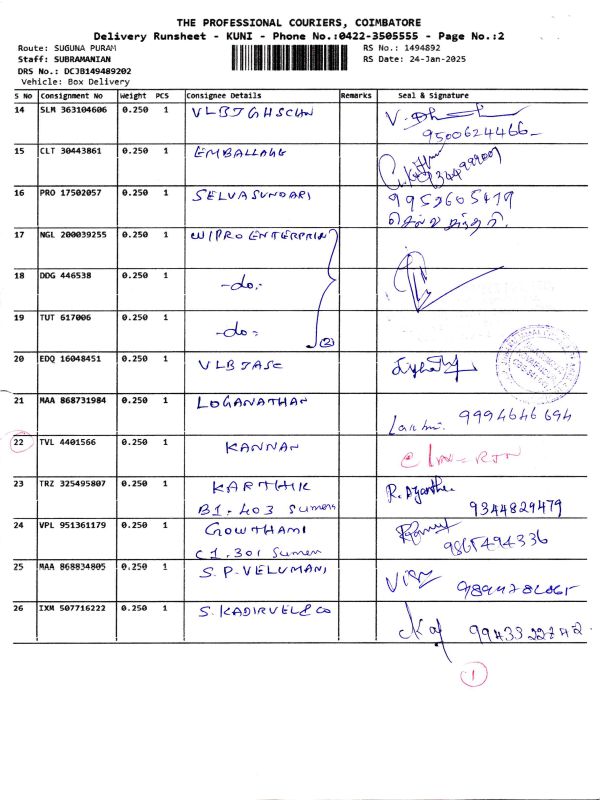 THE PROFESSIONAL COURIERS, COIMBATORE
Delivery Runsheet - KUNI - Phone No.:0422-3505555 - Page No.:2
Route: SUGUNA PURAM RS No.: 1494892
Staff: SUBRAMANIAN RS Date: 24-Jan-2025
DRS No.: DCJB149489202
Vehicle: Box Delivery
S No Consignment No Weight PCS Consignee Details Remarks Seal & Signature
14 SLM 363104606 0.250 1 VLBJGHSCHN
9500624466
15 CLT 30443861 0.250 1 EMBALLAGE
16 PRO 17502057 0.250 1 SELVASUNDARI 9952605419
17 NGL 200039255 0.250 1 WIPRO ENTERPRIN
18 DDG 446538 0.250 1 -do-
19 TUT 617006 0.250 1 -do-
(2)
20 EDQ 16048451 0.250 1 VLBJASC
21 MAA 868731984 0.250 1 LOGANATHAN
9994646694
22 TVL 4401566 0.250 1 KANNAN
RTN
23 TRZ 325495807 0.250 1 KARTHIK
B1-403 Sumers 9344829479
24 VPL 951361179 0.250 1 GOWTHAMI
C1.301 Sumen 9865494336
25 MAA 868834805 0.250 1 S.P-VELUMANI
26 IXM 507716222 0.250 1 S.KADIRVEL & CO
1